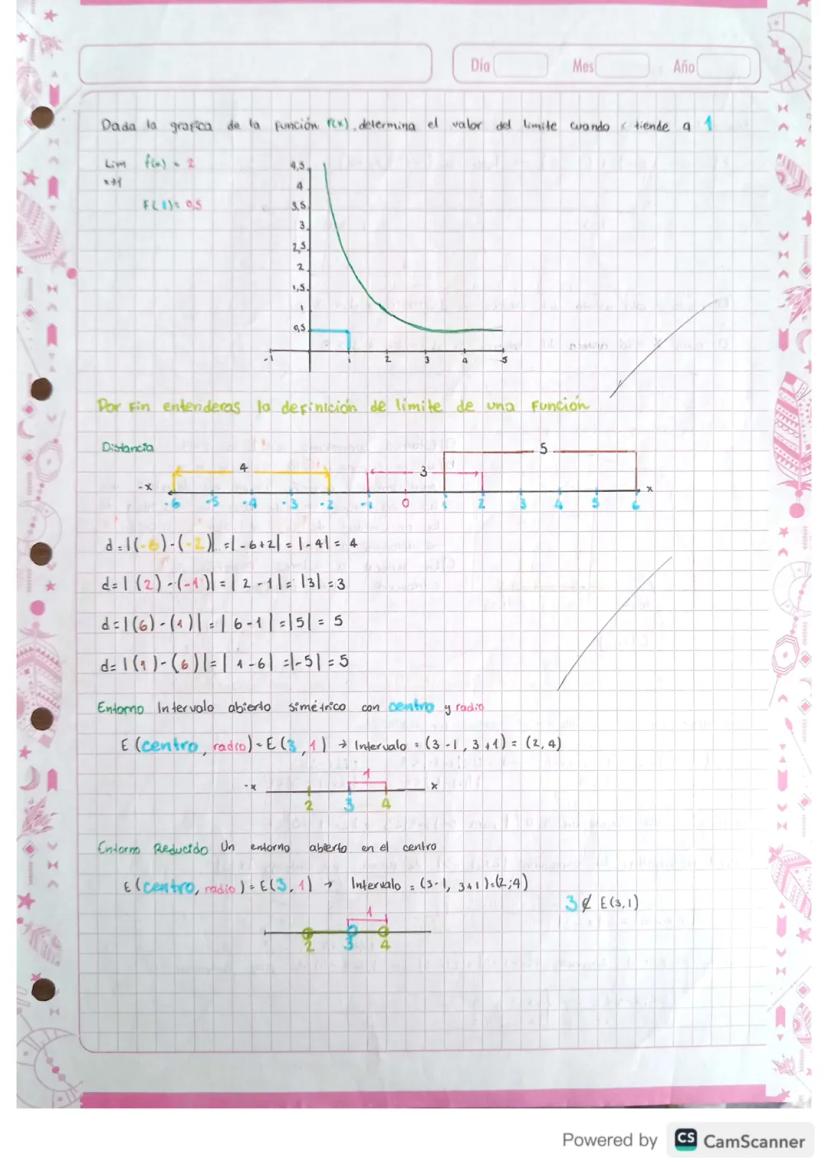 Día Mes Año
Dada la grafica de la función f(x), determina el valor del limite cuando x tiende a 1
Lim f(x) = 2
x→1
F(1)= 0,5
4,5
4
3,5
3
2,5
2
1,5
1
0,5
-1 1 2 3 4 5
Por fin entenderas la definición de limite de una Función
Distancia
4 3 5
-x -6 -5 -4 -3 -2 -1 0 1 2 3 4 5 6 x
d=|(-6)-(-2)| =|-6+2|=|-4|= 4
d=|(2)-(-1)|=|2-1|=|3|=3
d=|(6)-(1)|=|6-1|=|5|= 5
d=|(1)-(6)|=|1-6|=|-5|=5
Entorno Intervalo abierto simétrico con centro y radio
E (centro, radio)=E(3,1) → Intervalo = (3-1, 3+1) = (2,4)
1
-x x
2 3 4
Entorno Reducido Un entorno abierto en el centro
E(centro, radio)=E(3,1) → Intervalo = (3-1, 3+1)=(2;4)
3 ∉ E(3,1)
1
2 3 4
Powered by CS CamScanner